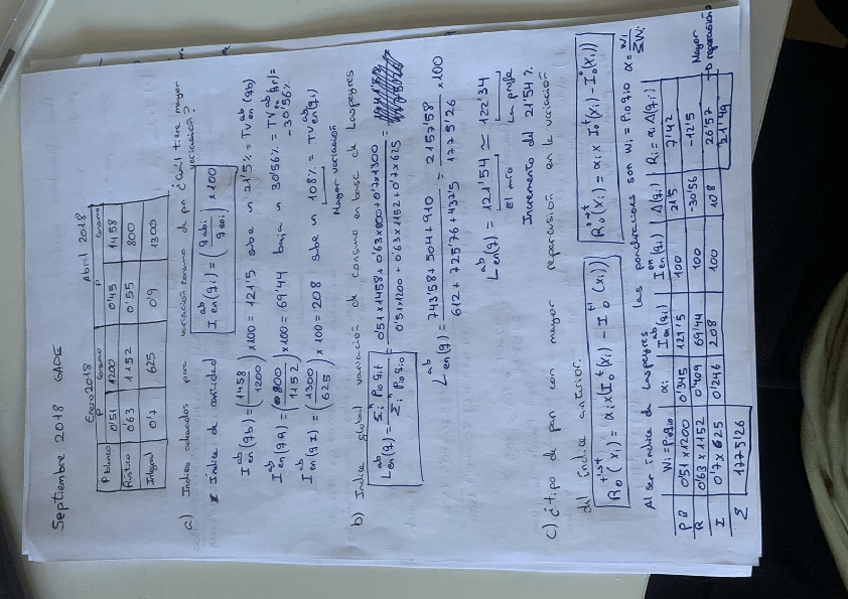 Septiembre 2018 GADE
Enero 2018 Abril 2018
P consumo P consumo
P blanco 0'51 1200 0'45 1458
Rústico 0'63 1152 0'55 800
Integral 0'7 625 0'9 1300
a) Índices adecuados para variación consumo de pan ¿cuál tiene mayor variación?
Índice de cantidad I ab en (qi) = (q abi / q eni) x 100
I ab en (qb) = (1458 / 1200) x100 = 121'5 sube un 21'5% = TV ab en (qb)
I ab en (qR) = (800 / 1152) x100 = 69'44 baja un 30'56% = TV ab en (qr) = -30'56%
I ab en (qI) = (1300 / 625) x 100 = 208 sube un 108% = TV ab en (qi)
Mayor variación
b) Índice global variación de consumo en base de Laspeyres
L ab en (q) = Σi Pio qit / Σi Pio qio = 0'51x1458 + 0'63x800 + 0'7x1300 / 0'51x1200 + 0'63x1152 + 0'7x625 =
L ab en (q) = 743'58 + 504 + 910 / 612 + 725'76 + 437'5 = 2157'58 / 1775'26 x100
L ab en (q) = 121'54 ≃ 122'34
El mío La profe
Incremento del 21'54%
c) ¿tipo de pan con mayor repercusión en la variación
del índice anterior.
R t-1,t o (xi) = αi x (I t o (xi) - I t-1 o (xi)) R o-t o (xi) = αi x I t o (xi) - I o o (xi))
Al ser índice de Laspeyres las ponderaciones son Wi = Pio qio α = Wi / ΣWi
Wi = Pio qio αi I ab en (qi) I en en (qi) Δ(qi) Ri = αi Δ(qi)
P B 0'51 x 1200 0'345 121'5 100 21'5 7'42
R 0'63 x 1152 0'409 69'44 100 -30'56 -12'5
I 0'7 x 625 0'246 208 100 108 26'57 Mayor repercusión
Σ 1775'26 21'49